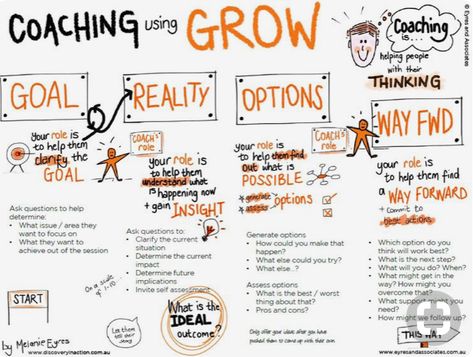 COACHING using GROW
© Eyres and Associates
Coaching
is...
helping people
with their
THINKING
GOAL
REALITY
OPTIONS
WAY FWD
your role is
to help them
clarify the
GOAL
Ask questions to help
determine:
• What issue / area they
want to focus on
• What they want to
achieve out of the session
START
by Melanie Eyres
www.discoveryinaction.com.au
COACH's
role
your role is
to help them
understand what
is happening now
+ gain INSIGHT
Ask questions to:
• Clarify the current
situation
• Determine the current
impact
• Determine future
implications
• Invite self assessment
On a scale
of 1-10..
Let them
tell their
story
What is the
IDEAL
outcome?
your role is
to help them find
out what is
POSSIBLE
* generate
* assess
options
Generate options
• How could you make that
happen?
• What else could you try?
• What else..?
Assess options
• What is the best / worst
thing about that?
• Pros and cons?
Only offer your ideas after you have
pushed them to come up with their own
COACH's
role
your role is
to help them find
a WAY FORWARD
+ commit to
best actions
• Which option do you
think will work best?
• What is the next step?
• What will you do? When?
• What might get in the
way? How might you
overcome that?
• What support might you
need?
• How might we follow up?
THIS WAY
www.eyresandassociates.com